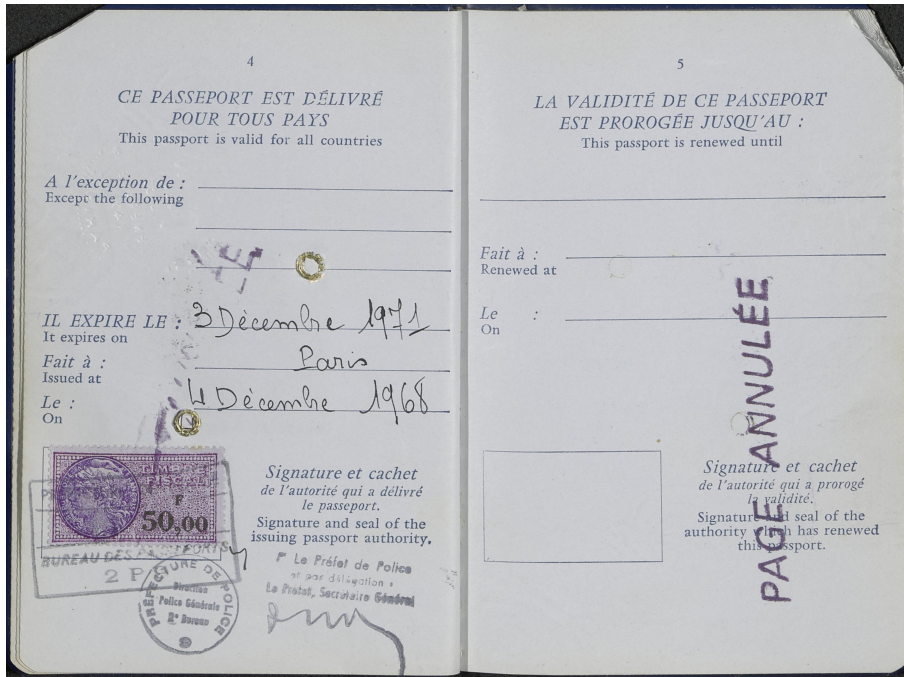 4
CE PASSEPORT EST DÉLIVRÉ
POUR TOUS PAYS
This passport is valid for all countries
A l'exception de :
Except the following
IL EXPIRE LE : 3 Décembre 1971
It expires on
Fait à : Paris
Issued at
Le : 4 Décembre 1968
On
TIMBRE
FISCAL
F
50,00
BUREAU DES PASSEPORTS
2 P
PRÉFECTURE DE POLICE
Direction
Police Générale
2e Bureau
Signature et cachet
de l'autorité qui a délivré
le passeport.
Signature and seal of the
issuing passport authority.
P Le Préfet de Police
et par délégation
Le Préfet, Secrétaire Général
5
LA VALIDITÉ DE CE PASSEPORT
EST PROROGÉE JUSQU'AU :
This passport is renewed until
Fait à :
Renewed at
Le :
On
Signature et cachet
de l'autorité qui a prorogé
la validité.
Signature and seal of the
authority which has renewed
this passport.
PAGE ANNULÉE